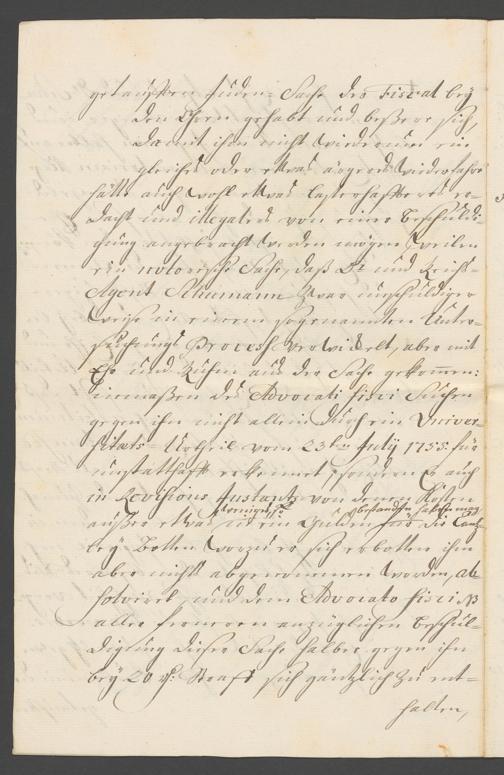 getaufften Juden-Sache des Fiscal bey
den Ohren gehabt und beßere sich,
damit ihm nicht wiederum ein
gleiches oder etwas ärgers wiederfahre
hätte auch wohl etwas lasterhaffteres er-
dacht und illegalers von einer Beschuldi-
gung angebracht werden mögen, weilen
ein notorische Sache, daß Dr und Reichs-
Agent Schumann zwar unschuldiger
weise in einem sogenannten Unter-
suchungs Process verwickelt, aber mit
Ehr und Ruhm aus der Sache gekommen:
immaßen des Advocati fisci Suchen
gegen ihn nicht allein durch ein Univer-
sitæts-Urtheil vom 23ten July 1755. für
unstatthafft erkennet, sondern Er auch
in Revisions Instantz von denen Kosten
außer etwa in ein Gulden für die Cantz-
ley-Botten worzu er sich erbotten ihm
aber nicht abgenommen worden, ab-
solviret, und dem Advocato fisci NB
aller ferneren anzüglichen Beschul-
digung dieser Sache halber gegen ihn
bey 20 Straff sich gäntzlich zu ent-
halten,